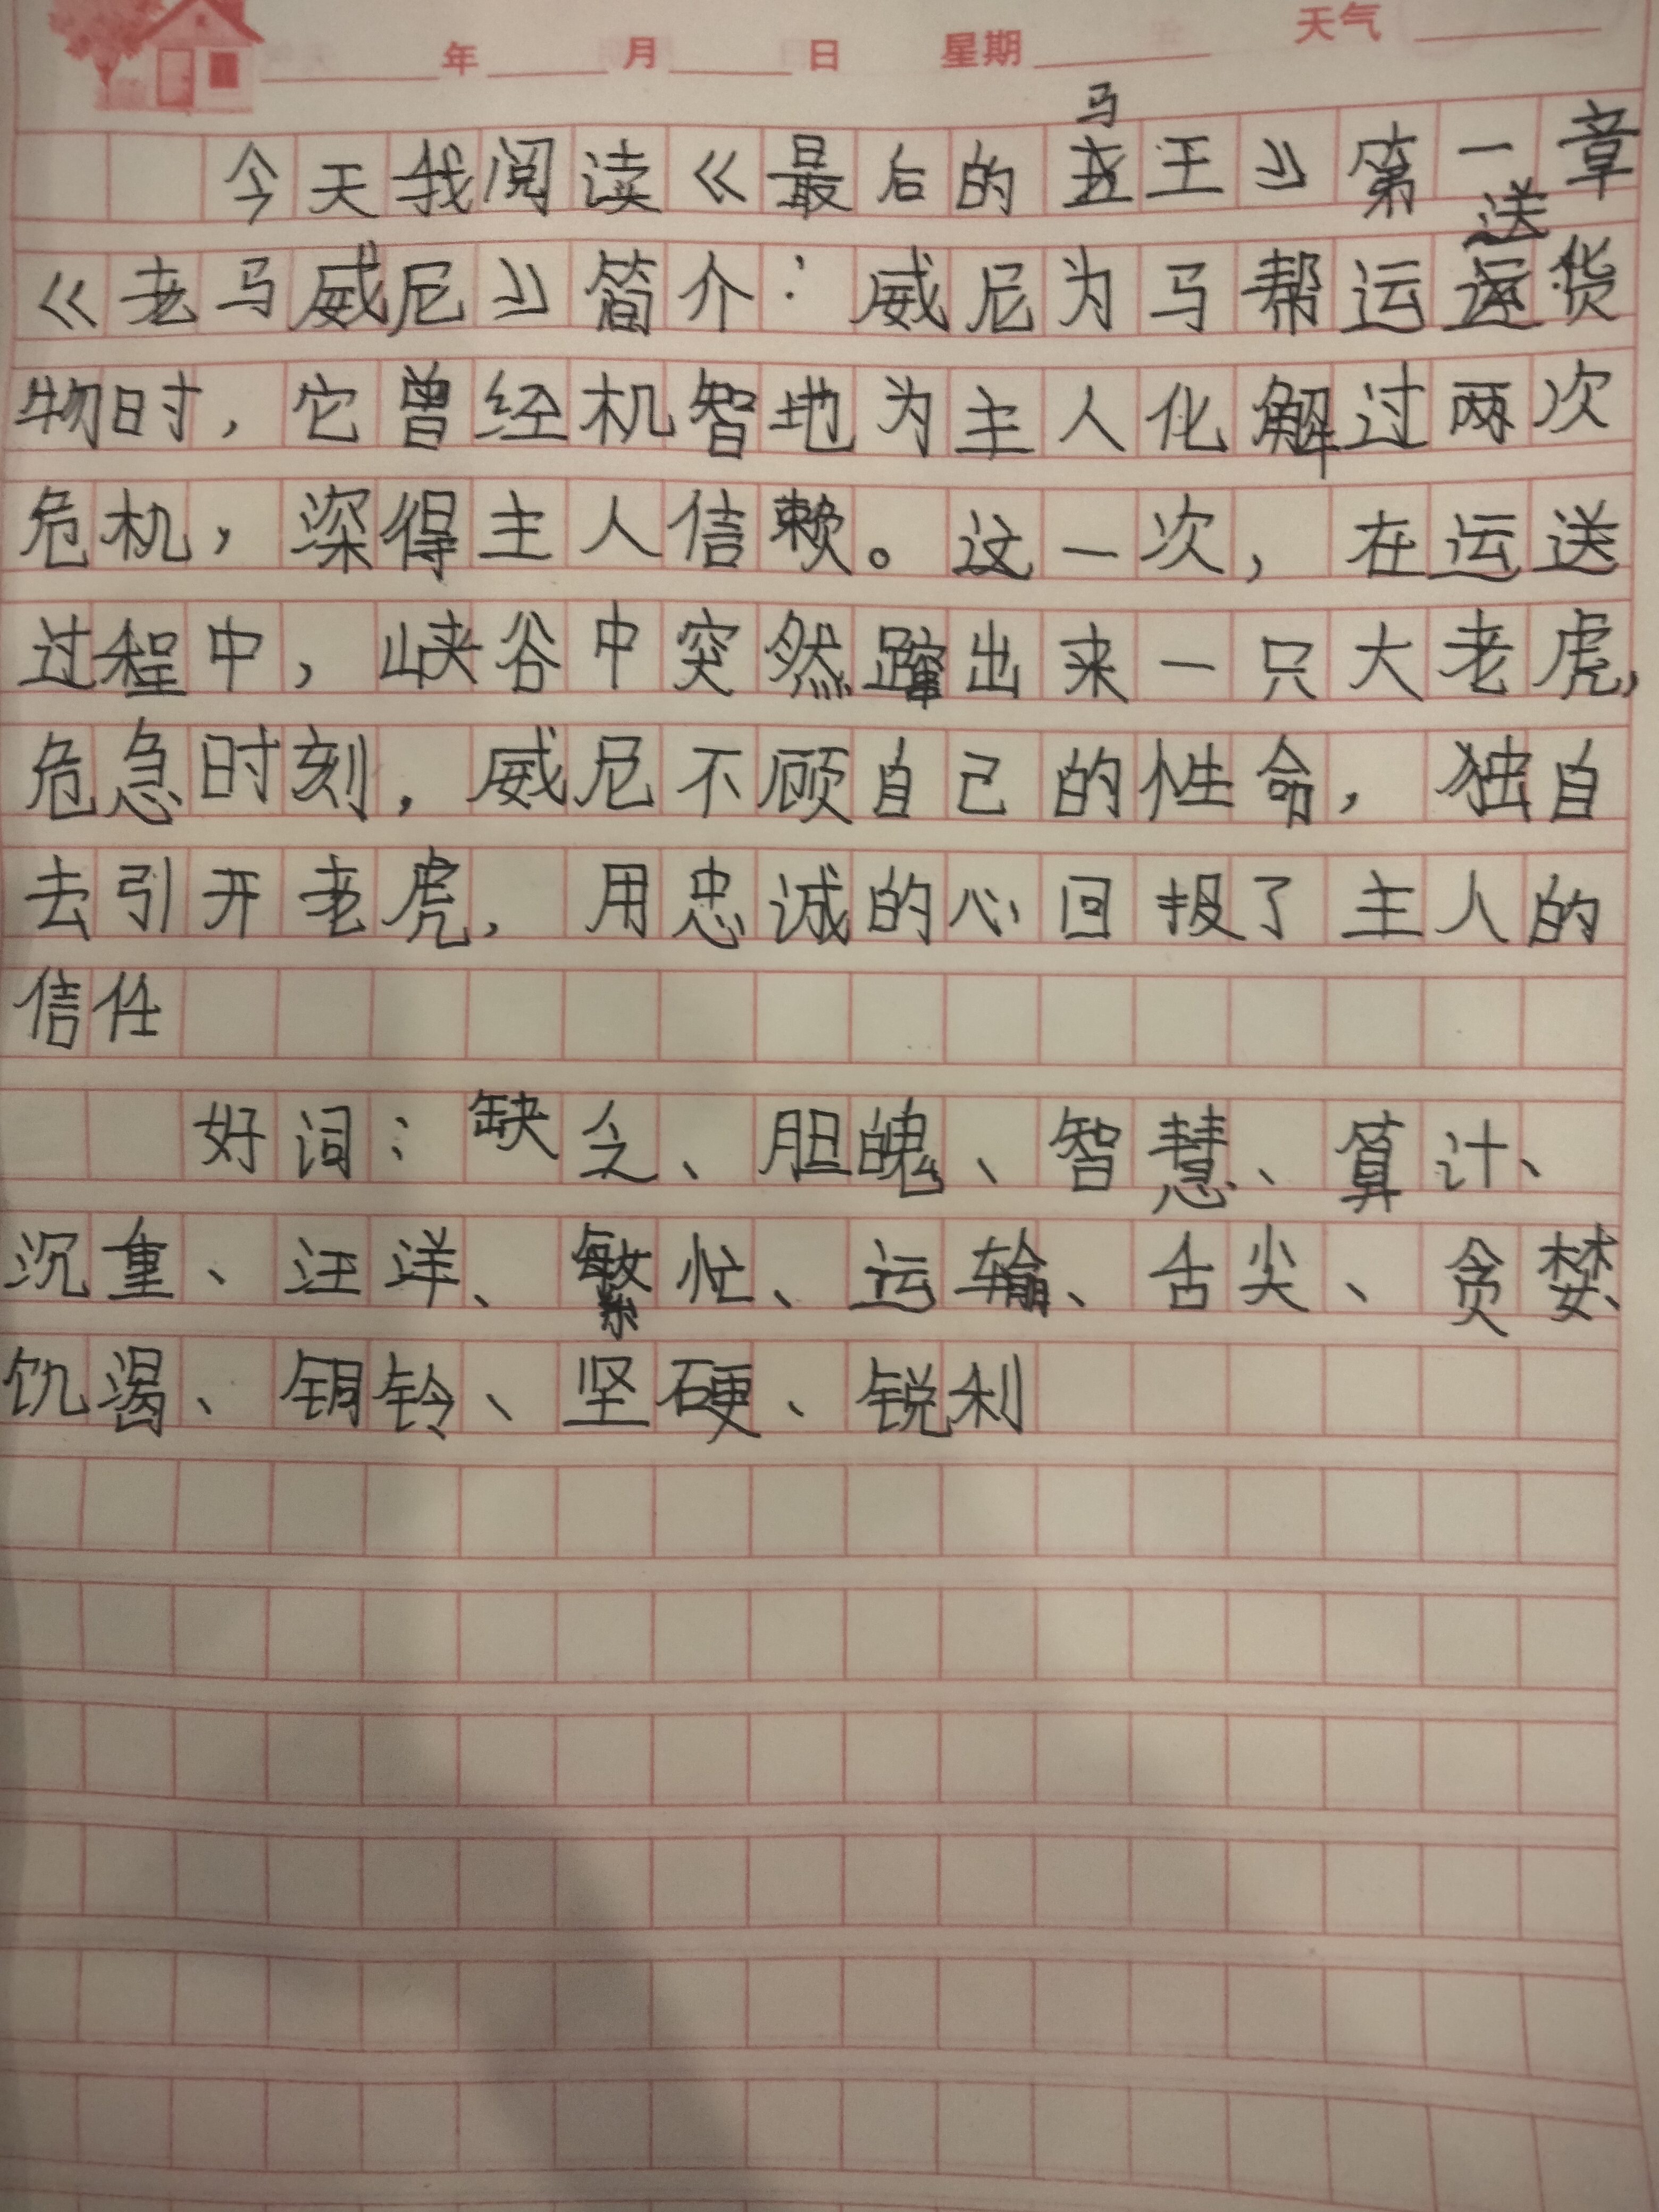 年 月 日 星期 天气
今天我阅读《最后的马王》第一章
《老马威尼》简介：威尼为马帮运送货
物时，它曾经机智地为主人化解过两次
危机，深得主人信赖。这一次，在运送
过程中，峡谷中突然蹿出来一只大老虎，
危急时刻，威尼不顾自己的性命，独自
去引开老虎，用忠诚的心回报了主人的
信任
好词：缺乏、胆魄、智慧、算计、
沉重、汪洋、繁忙、运输、舌尖、贪婪、
饥渴、铜铃、坚硬、锐利